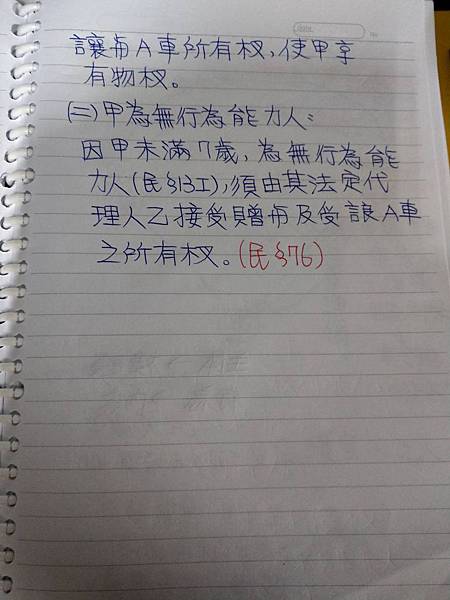 讓与A車所有权,使甲享
有物权。
(二)甲為無行為能力人:
因甲未滿7歲,為無行為能
力人(民§13I),須由其法定代
理人乙接受贈与及受讓A車
之所有权。(民§76)